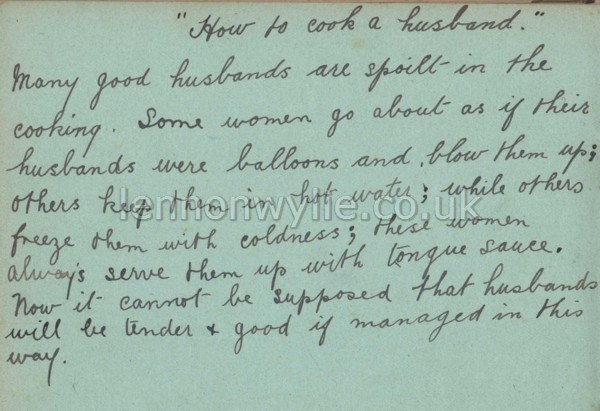 "How to cook a husband."
Many good husbands are spoilt in the
cooking. Some women go about as if their
husbands were balloons and blow them up;
others keep them in hot water; while others
lennonwylie.co.uk
freeze them with coldness; these women
always serve them up with tongue sauce.
Now it cannot be supposed that husbands
will be tender & good if managed in this
way.